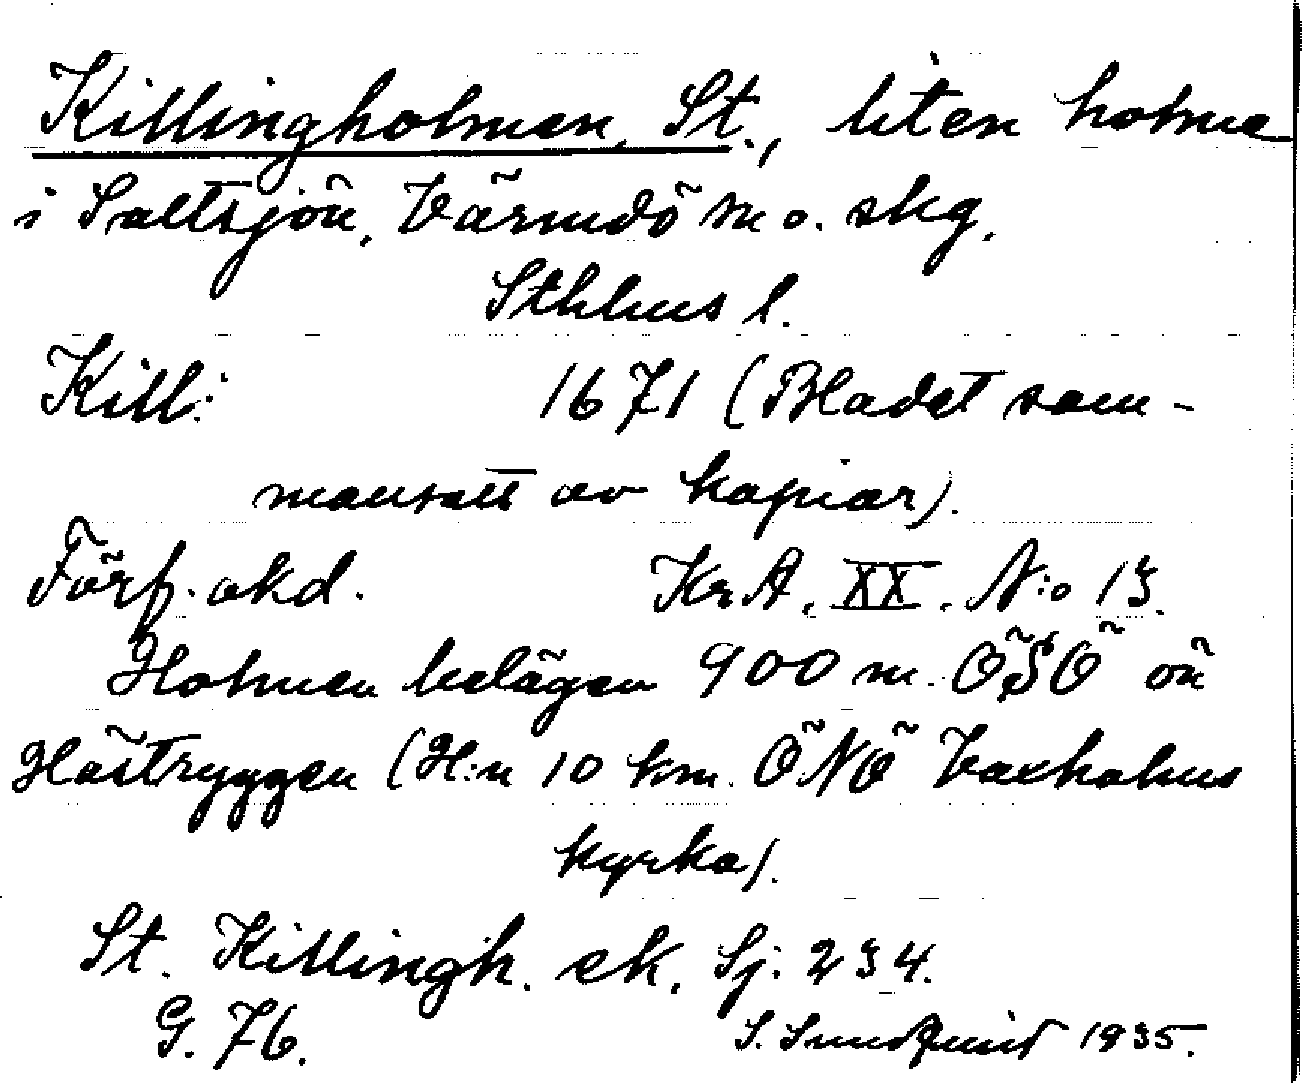 Killingholmen, St., liten holme
i Saltsjön, Värmdö sn o. skg,
Sthlms l.
Kill:
1671 (Bladet sam-
mansatt av kopior).
Förf. okd.
KrA, XX. N:o 13.
Holmen belägen 900 m. ÖSÖ ön
Hästryggen (H:n 10 km. ÖNÖ Vaxholms
kyrka).
St. Killingh. ek. Sj: 234.
G. 76.
S. Sundquist 1935.